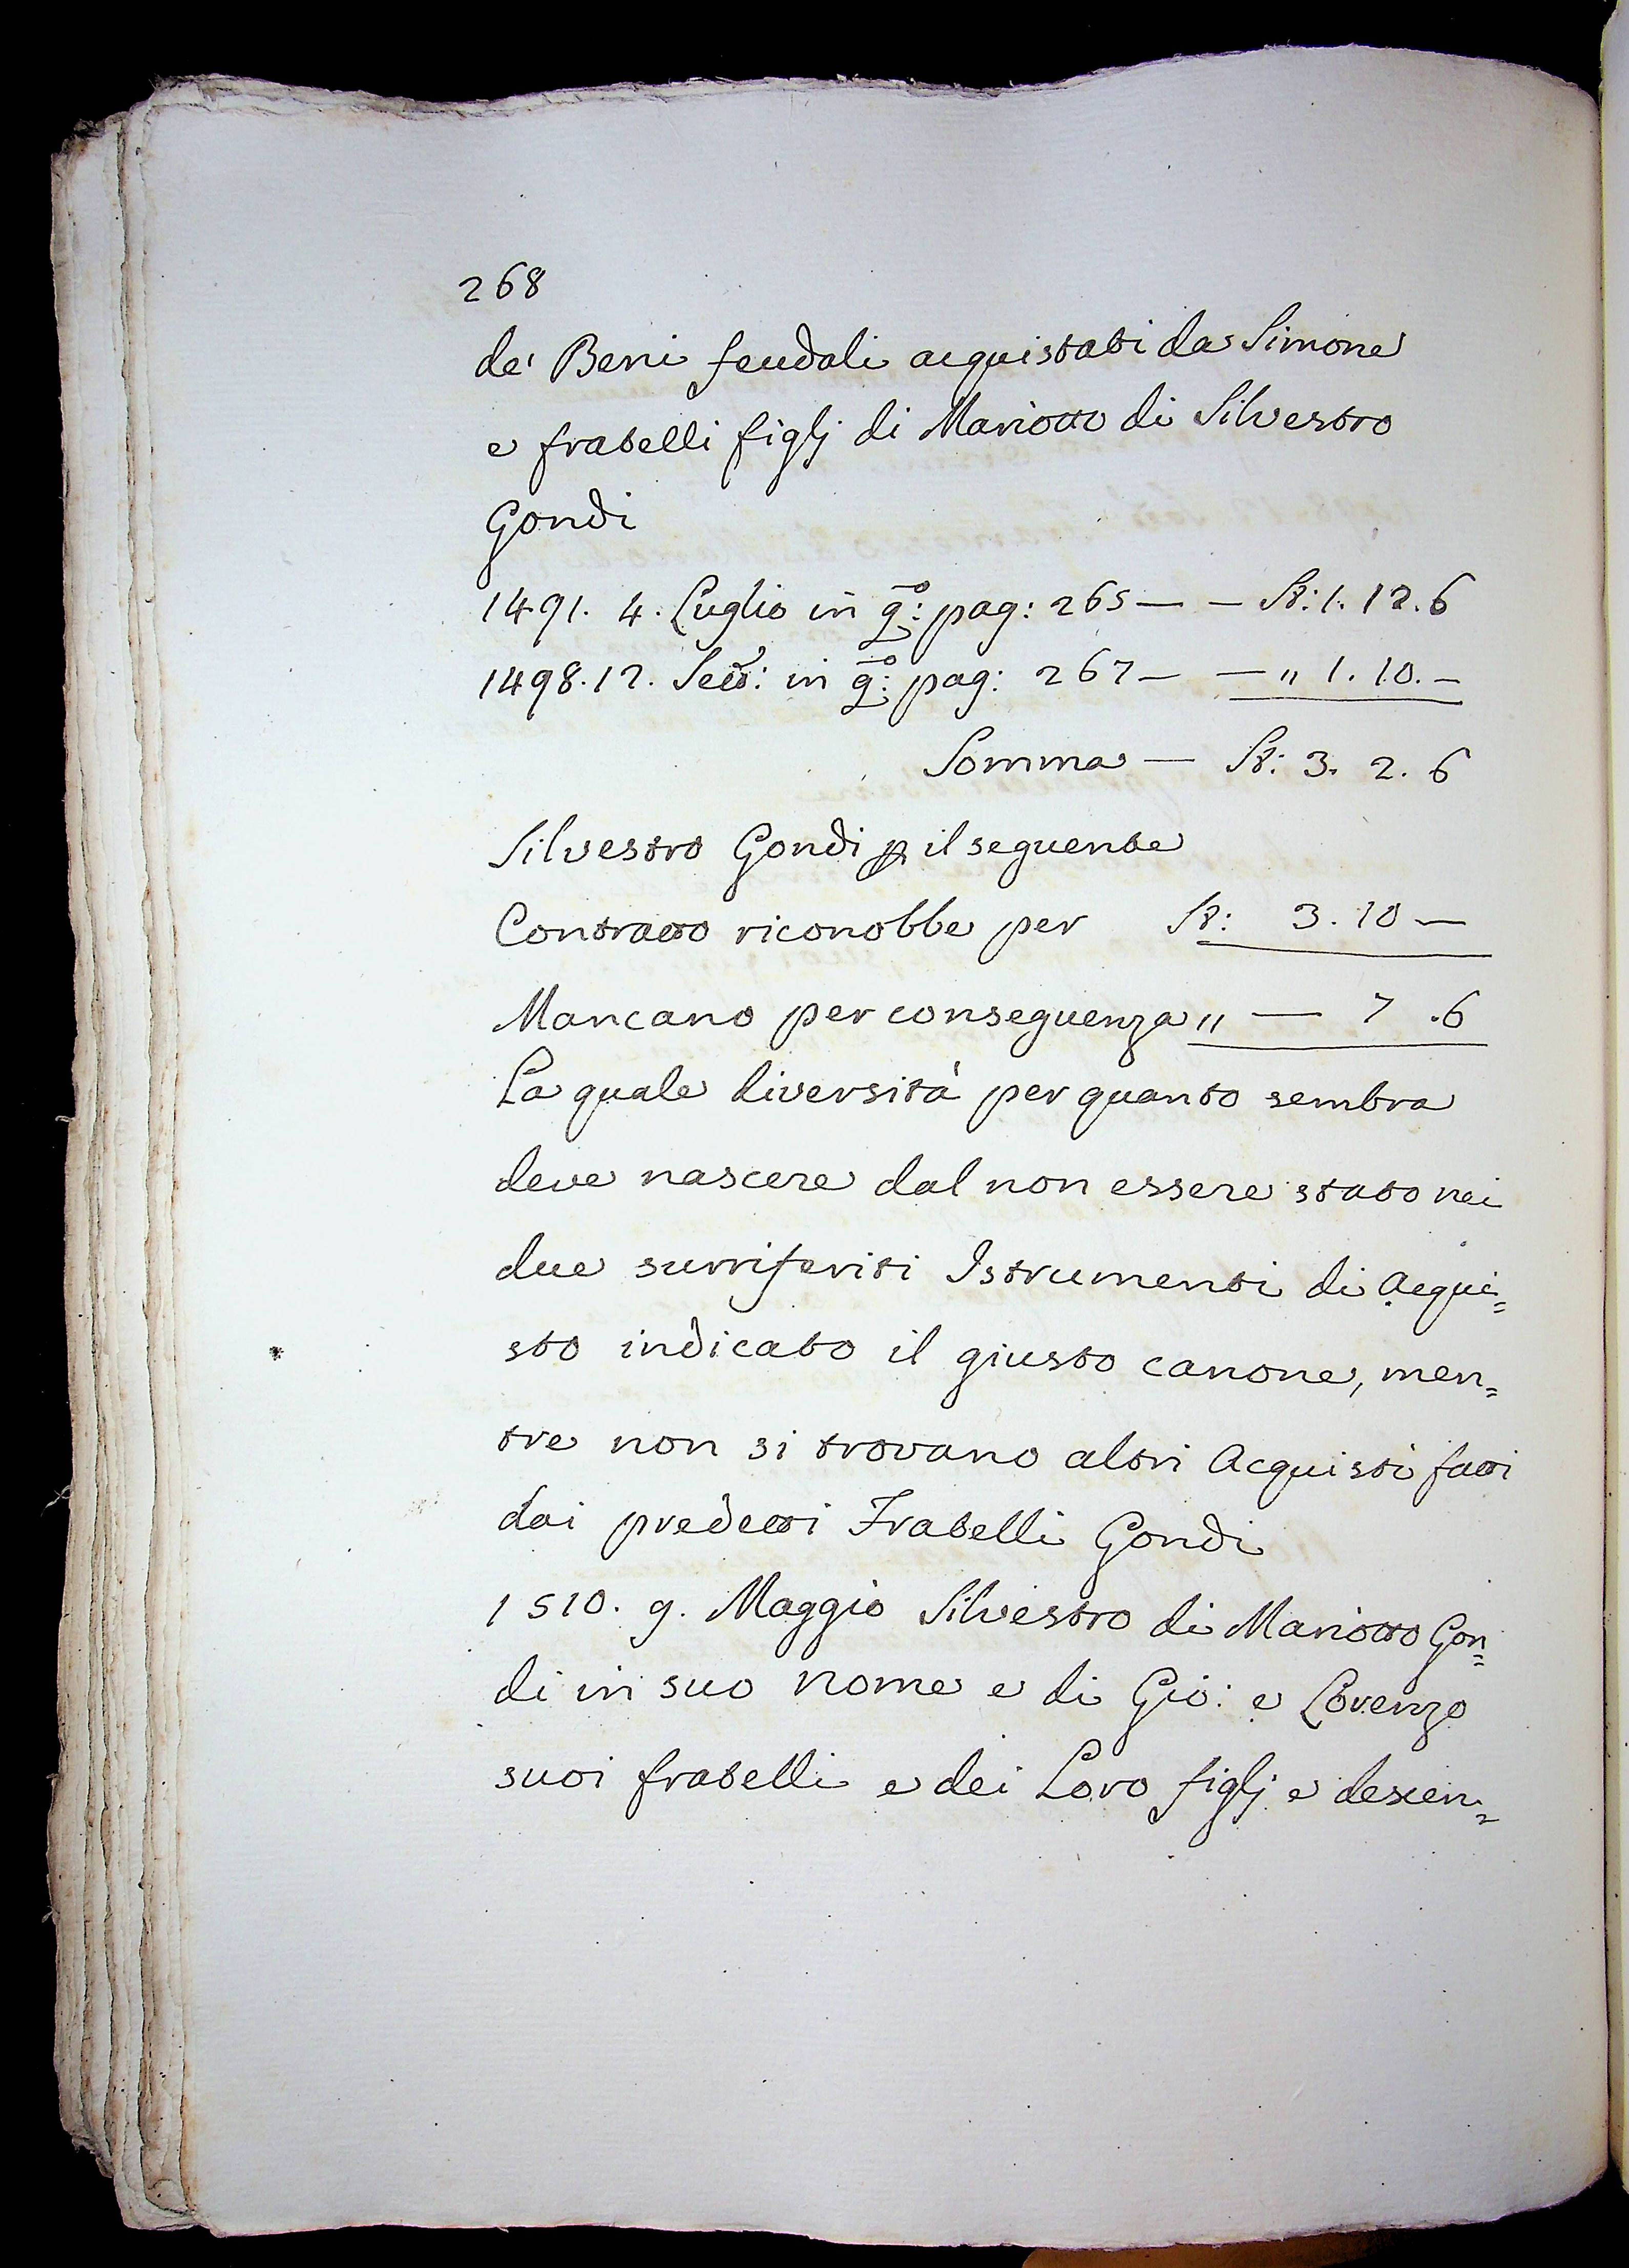 268
de' Beni feudali acquistati da Simone
e fratelli figlj di Mariotto di Silvestro
Gondi
1491. 4. Luglio in q:º pag: 265 — — St: 1. 12. 6
1498. 12. Sett: in q:º pag: 267 — — " 1. 10. —
Somma — St: 3. 2. 6
Silvestro Gondi p il seguente
Contratto riconobbe per St: 3. 10 —
Mancano per conseguenza " — 7 .6
La quale diversità per quanto sembra
deve nascere dal non essere stato nei
due surriferiti Istrumenti di Acqui=
sto indicato il giusto canone, men=
tre non si trovano altri Acquisti fatti
dai predetti Fratelli Gondi
1510. 9. Maggio Silvestro di Mariotto Gon=
di in suo nome e di Gio: e Lorenzo
suoi fratelli e dei Loro figlj e descen=